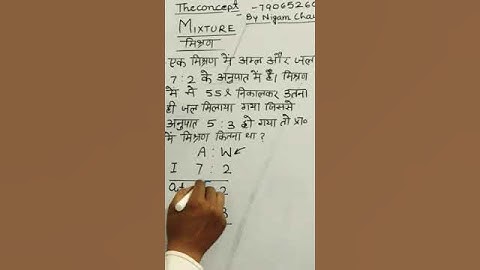 Theconcept -79065260
MIXTURE By Nigam Chau
मिश्रण
एक मिश्रण में अम्ल और जल
7:2 के अनुपात में है। मिश्रण
में से 55ℓ निकालकर उतना
ही जल मिलाया गया जिससे
अनुपात 5:3 हो गया तो प्रा०
में मिश्रण कितना था ?
A : W
I 7 : 2
2
3